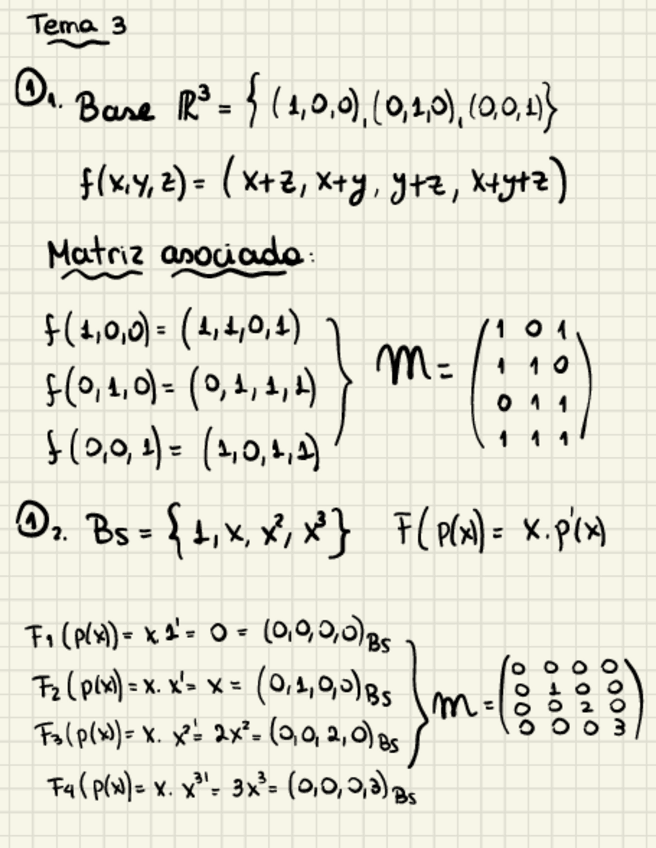 Tema 3
① 1. Base ℝ³ = { (1,0,0), (0,1,0), (0,0,1)}
f(x,y,z) = (x+z, x+y, y+z, x+y+z)
Matriz asociada:
f(1,0,0) = (1,1,0,1)
f(0,1,0) = (0,1,1,1)
f(0,0,1) = (1,0,1,1)
M =
1 0 1
1 1 0
0 1 1
1 1 1
① 2. Bs = {1, x, x², x³} F(p(x) = x.p'(x)
F₁(p(x)) = x.1' = 0 = (0,0,0,0)Bs
F₂(p(x) = x. x' = x = (0,1,0,0)Bs
F₃(p(x)) = x. x²' = 2x² = (0,0,2,0)Bs
F₄(p(x) = x. x³' = 3x³ = (0,0,0,3)Bs
M =
0 0 0 0
0 1 0 0
0 0 2 0
0 0 0 3